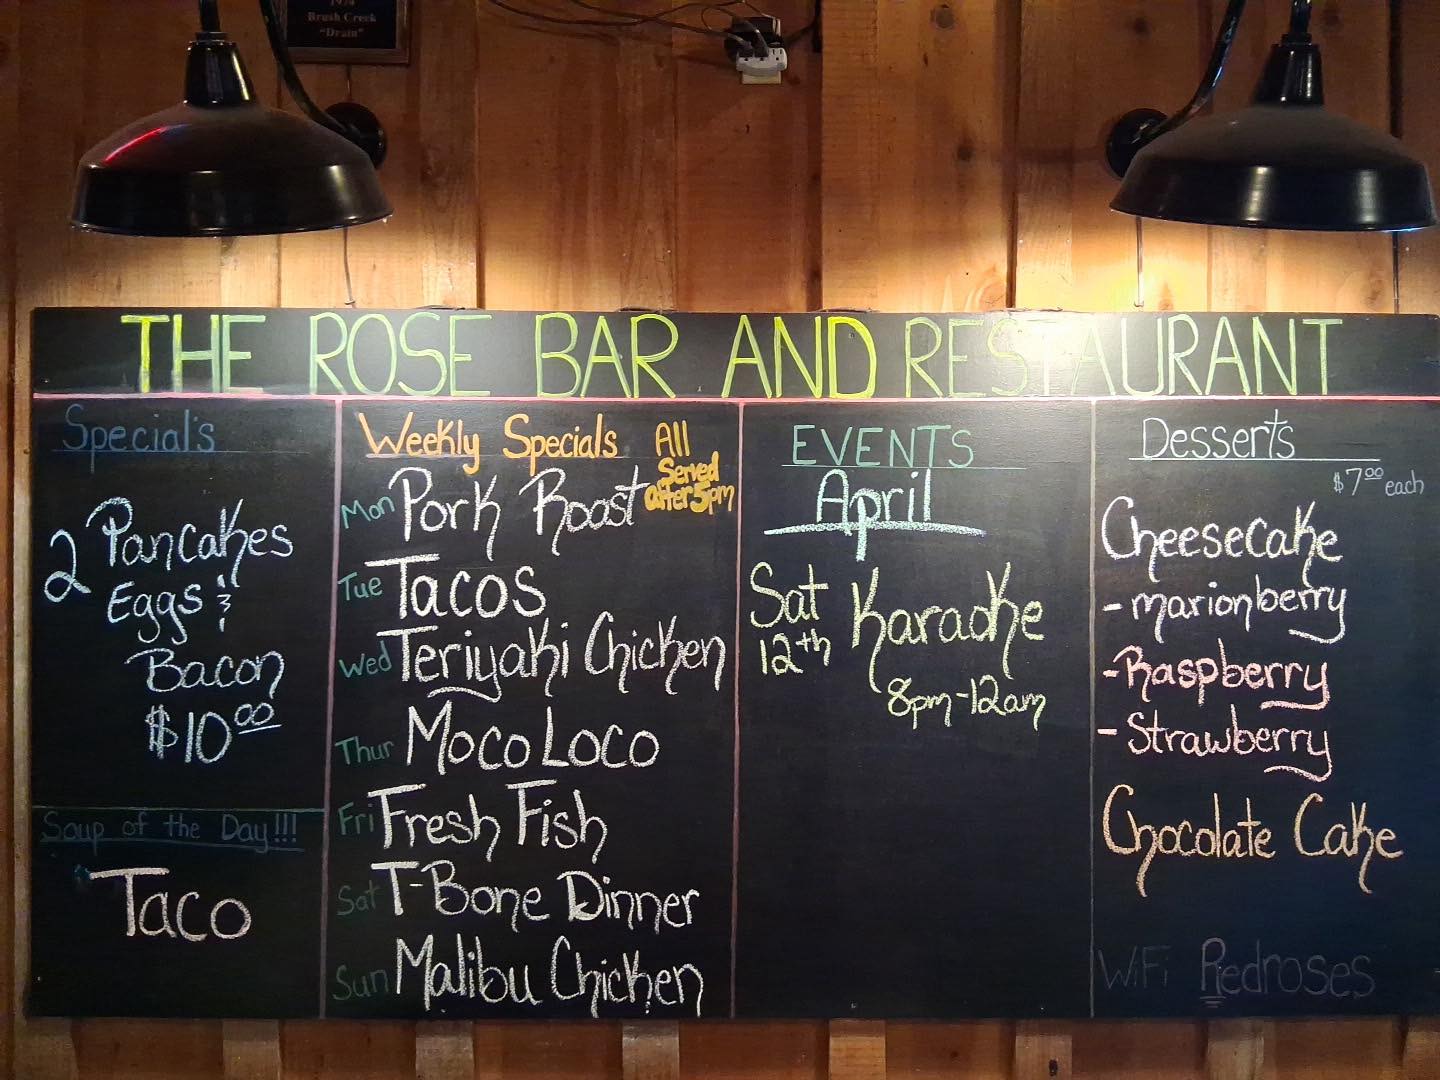 1974
Brush Creek
"Drain"
THE ROSE BAR AND RESTAURANT
Special's
2 Pancakes
Eggs &
Bacon
$10.00
Soup of the Day!!!
Taco
Weekly Specials All
Served
after 5pm
Mon Pork Roast
Tue Tacos
Wed Teriyaki Chicken
Thur Moco Loco
Fri Fresh Fish
Sat T-Bone Dinner
Sun Malibu Chicken
EVENTS
April
Sat Karaoke
12th
8pm-12am
Desserts
$7.00 each
Cheesecake
- marionberry
- Raspberry
- Strawberry
Chocolate Cake
WiFi Redroses